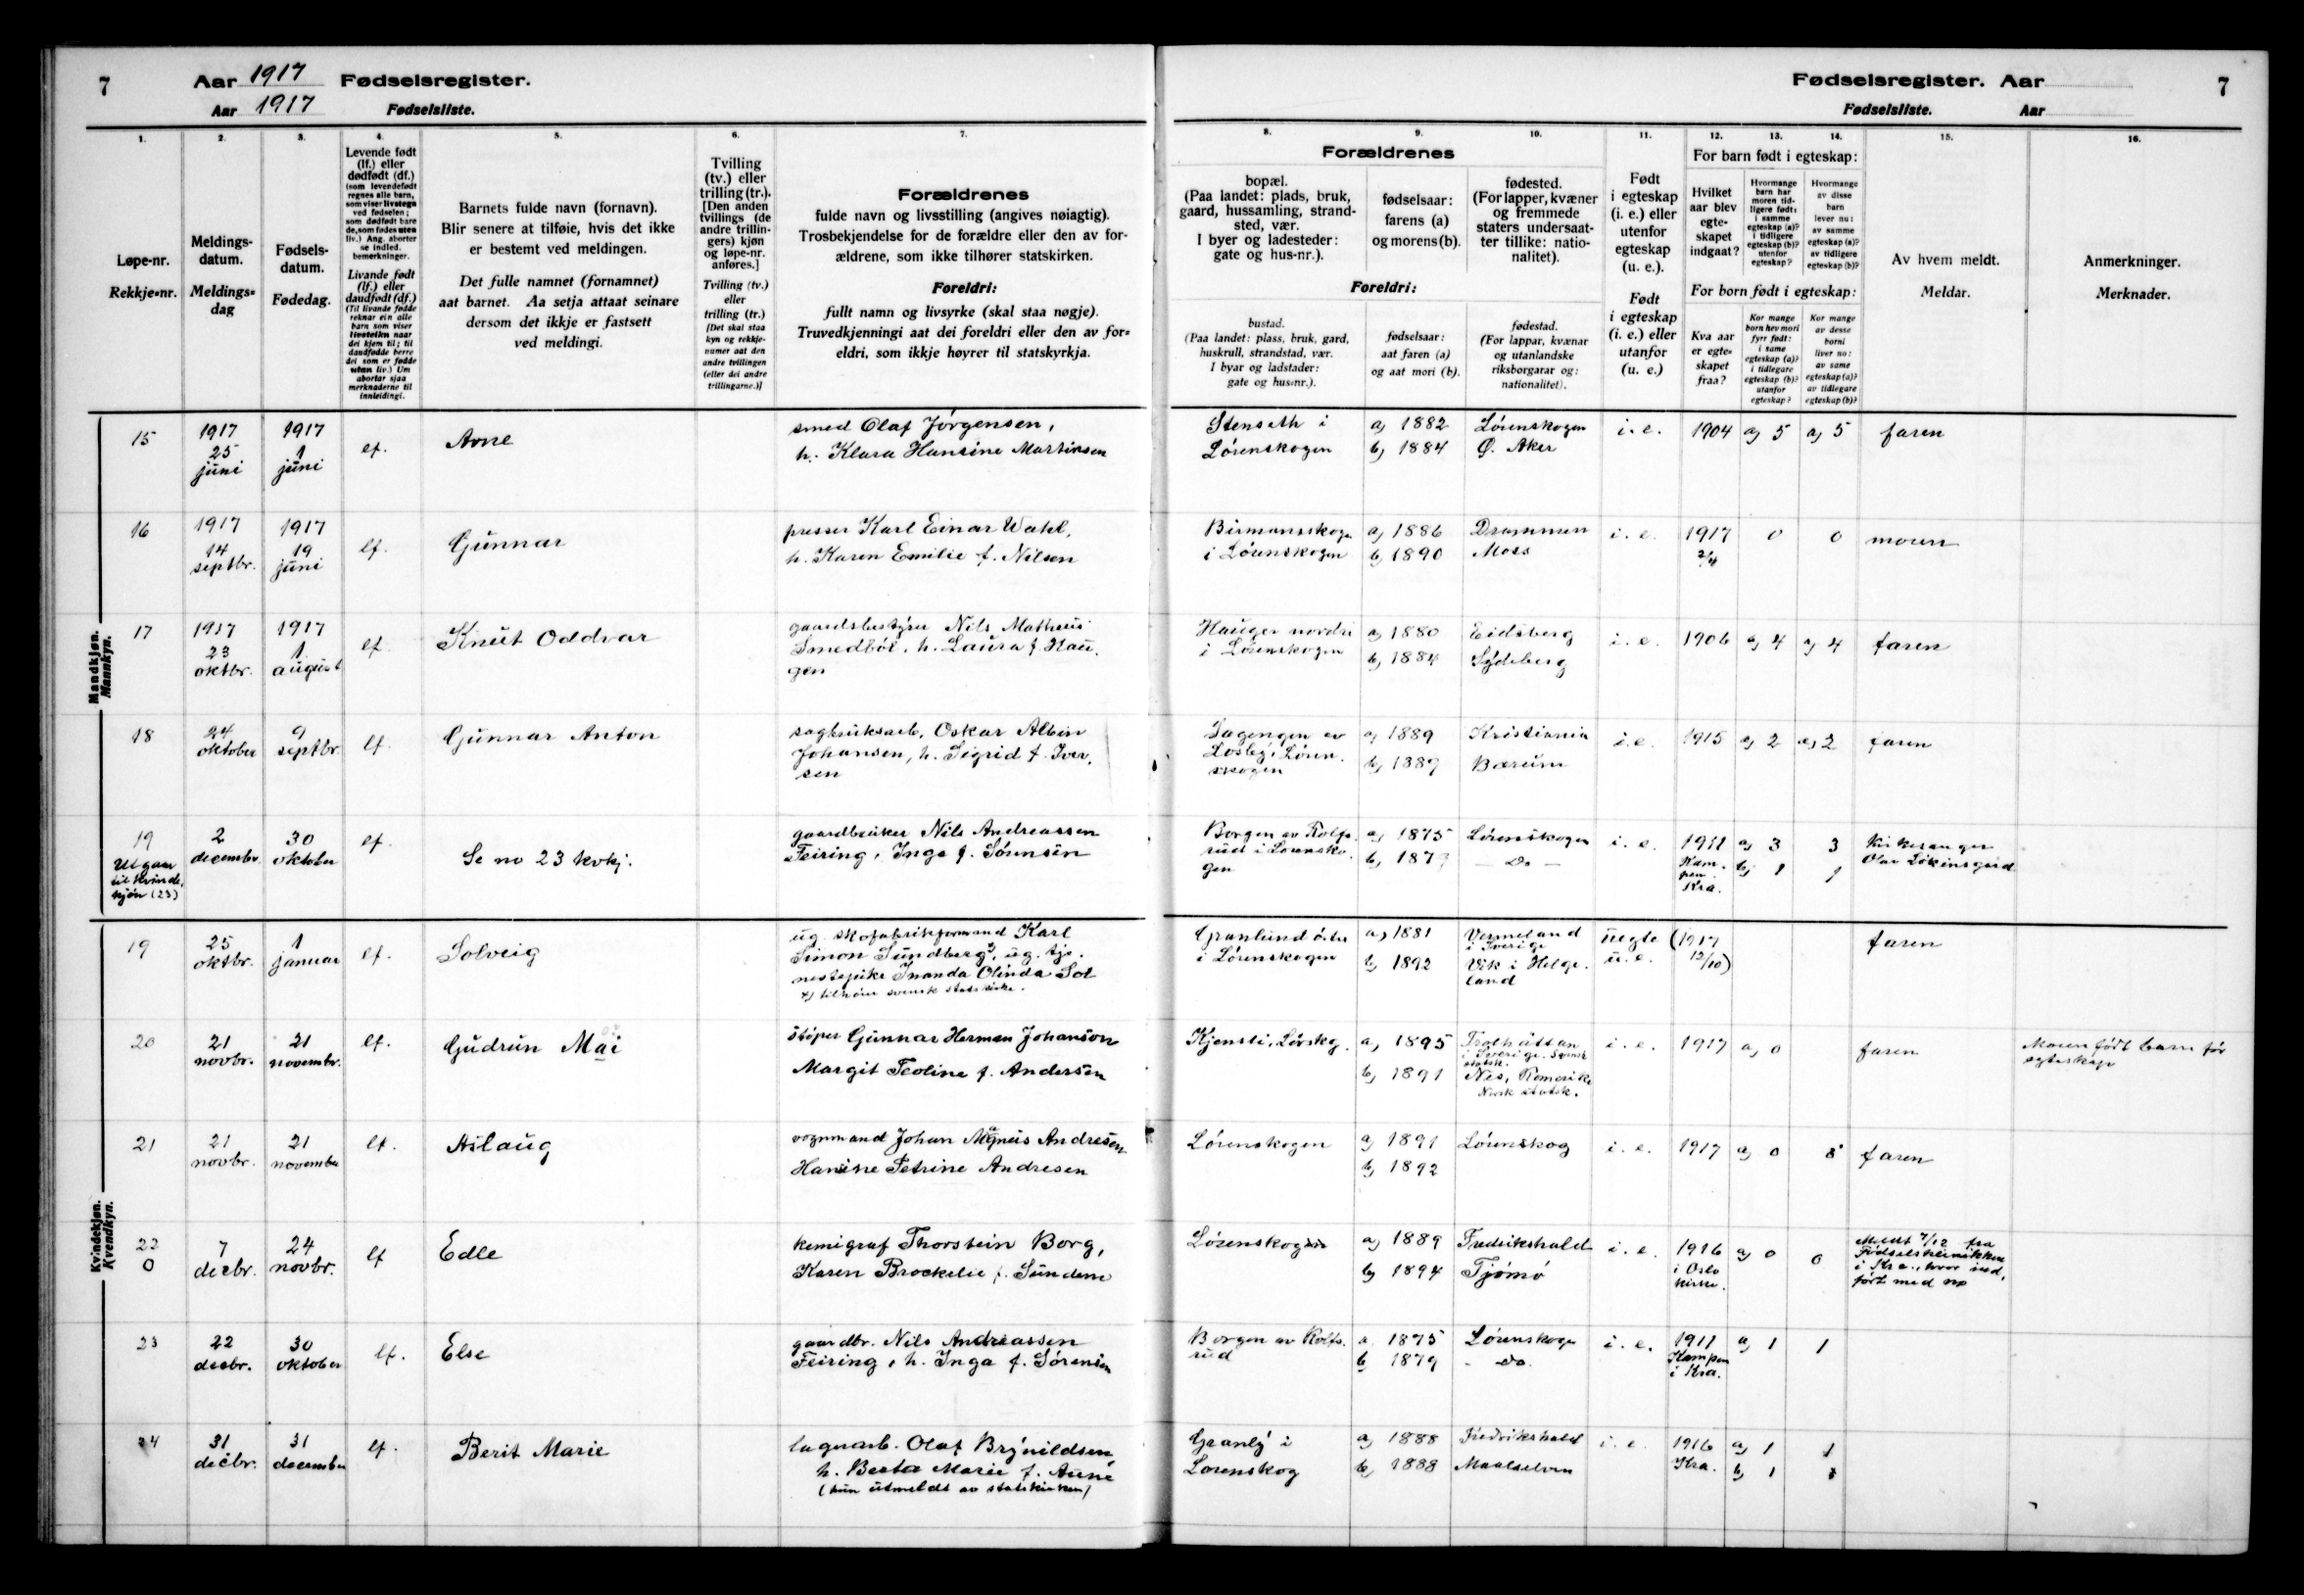 7
Aar 1917 Fødselsregister.
Aar 1917 Fødselsliste.
1.
Løpe-nr.
Rekkje-nr.
2.
Meldings-
datum.
Meldings-
dag
3.
Fødsels-
datum.
Fødedag.
4.
Levende født
(lf.) eller
dødfødt (df.)
(som levendefødt
regnes alle barn,
som viser livstegn
ved fødselen;
som dødfødt bare
de, som fødes uten
liv.) Ang. aborter
se indled.
bemerkninger.
Livande født
(lf.) eller
daudfødt (df.)
(Til livande fødde
reknar ein alle
barn som viser
livsteikn naar
dei kjem til; til
daudfødde berre
dei som er fødde
utan liv.) Um
abortar sjaa
merknaderne til
innleidingi.
5.
Barnets fulde navn (fornavn).
Blir senere at tilføie, hvis det ikke
er bestemt ved meldingen.
Det fulle namnet (fornamnet)
aat barnet. Aa setja attaat seinare
dersom det ikkje er fastsett
ved meldingi.
6.
Tvilling
(tv.) eller
trilling (tr.).
[Den anden
tvillings (de
andre trillin-
gers) kjøn
og løpe-nr.
anføres.]
Tvilling (tv.)
eller
trilling (tr.)
[Det skal staa
kyn og rekkje-
numer aat den
andre tvillingen
(eller dei andre
trillingarne.)]
7.
Forældrenes
fulde navn og livsstilling (angives nøiagtig).
Trosbekjendelse for de forældre eller den av for-
ældrene, som ikke tilhører statskirken.
Foreldri:
fullt namn og livsyrke (skal staa nøgje).
Truvedkjenningi aat dei foreldri eller den av for-
eldri, som ikkje høyrer til statskyrkja.
Mandkjøn.
Mannkyn.
15
1917
25
juni
1917
1
juni
lf.
Arne
smed Olaf Jørgensen,
h. Klara Hansine Martinsen
16
1917
14
septbr.
1917
19
juni
lf.
Gunnar
presser Karl Einar Wahl,
h. Karen Emilie f. Nilsen
17
1917
23
oktbr.
1917
1
august
lf.
Knut Oddvar
gaardsbestyrer Nils Matheus
Smedbøl, h. Laura f. Hau-
gen
18
24
oktober
9
septbr.
lf.
Gunnar Anton
sagbruksarb. Oskar Albin
Johansen, h. Sigrid f. Iver-
sen
19
Utgaar
til kvinde-
kjøn (23)
2
decembr.
30
oktober
lf.
Se no 23 kvkj.
gaardbruker Nils Andreassen
Feiring, Inga f. Sørensen
Kvindekjøn.
Kvendkyn.
19
25
oktbr.
1
januar
lf.
Solveig
ug. skofabrikformand Karl
Simon Sundberg x), ug. tje-
nestepike Inanda Olinda Sol
x) tilhører svensk statskirke.
20
21
novbr.
21
novembr.
lf.
Gudrun Mai
støper Gunnar Herman Johanson
Margit Teoline f. Andersen
21
21
novbr.
21
november
lf.
Aslaug
vognmand Johan Magnus Andresen
Hansine Petrine Andresen
22
0
7
decbr.
24
novbr.
lf
Edle
kemigraf Thorstein Borg,
Karen Brockelie f. Sundene
23
22
decbr.
30
oktober
lf.
Else
gaardbr. Nils Andreassen
Feiring, h. Inga f. Sørensen
24
31
decbr.
31
december
lf.
Berit Marie
lagerarb. Olaf Brynildsen,
h. Berta Marie f. Aune
(hun utmeldt av statskirken)
Fødselsregister. Aar 7
Fødselsliste. Aar
8.
Forældrenes
bopæl.
(Paa landet: plads, bruk,
gaard, hussamling, strand-
sted, vær.
I byer og ladesteder:
gate og hus-nr.).
Foreldri:
bustad.
(Paa landet: plass, bruk, gard,
huskrull, strandstad, vær.
I byar og ladstader:
gate og hus-nr.).
9.
fødselsaar:
farens (a)
og morens (b).
fødselsaar:
aat faren (a)
og aat mori (b).
10.
fødested.
(For lapper, kvæner
og fremmede
staters undersaat-
ter tillike: natio-
nalitet).
fødestad.
(For lappar, kvænar
og utanlandske
riksborgarar og:
nationalitet).
11.
Født
i egteskap
(i. e.) eller
utenfor
egteskap
(u. e.).
Født
i egteskap
(i. e.) eller
utanfor
(u. e.)
12. 13. 14.
For barn født i egteskap:
Hvilket
aar blev
egte-
skapet
indgaat?
Hvormange
barn har
moren tid-
ligere født:
i samme
egteskap (a)?
i tidligere
egteskap (b)?
utenfor
egteskap?
Hvormange
av disse
barn
lever nu:
av samme
egteskap (a)?
av tidligere
egteskap (b)?
For born født i egteskap:
Kva aar
er egte-
skapet
fraa?
Kor mange
born hev mori
fyrr født:
i same
egteskap (a)?
i tidlegare
egteskap (b)?
utanfor
egteskap?
Kor mange
av desse
borni
liver no:
av same
egteskap (a)?
av tidlegare
egteskap (b)?
15.
Av hvem meldt.
Meldar.
16.
Anmerkninger.
Merknader.
Stenseth i
Lørenskogen
a) 1882
b) 1884
Lørenskogen
Ø. Aker
i. e. 1904 a) 5 a) 5 faren
Birmansskoge
i Lørenskogen
a) 1886
b) 1890
Drammen
Moss
i. e. 1917
2/4
0 0 moren
Hauger nordre
i Lørenskogen
a) 1880
b) 1884
Eidsberg
i. e. 1906 a) 4 a) 4 faren
Sagengen av
Losby i Løren-
skogen
a) 1889
b) 1889
Kristiania
Bærum
i. e. 1915 a) 2 a) 2 faren
Borgen av Rolfs-
rud i Lørensko-
gen
a) 1875
b) 1879
Lørenskogen
— Do —
i. e. 1911
Kam-
pen
Kra.
a) 3 3
b) 1 1
Kirkesanger
Olav
Granlund østre
i Lørenskogen
a) 1881
b) 1892
Vermeland
i Sverige
Vik i Helge-
land
uegte
u. e.
(1917
12/10)
faren
Kjensli, Lørskg.
a) 1895
b) 1891
Trolhättan
i Sverige. Svensk
statsk.
Nes, Romerike
Norsk statsk.
i. e. 1917 a) 0 faren
Moren født barn før
egteskap
Lørenskogen
a) 1891
b) 1892
Lørenskog
i. e. 1917 a) 0 faren
Lørenskogen
a) 1889
b) 1894
Fredrikshald
Tjømø
i. e. 1916
i Oslo
kirke.
a) 0 0
Meldt 7/12 fra
Fødselsklinikken
i Kra., hvor ind-
ført med no
Borgen av Rolfs-
rud
a 1875
b 1879
Lørenskogen
- do.
i. e. 1911
Kampen
i Kra.
a) 1 1
Granly i
Lørenskog
a) 1888
b) 1888
Fredrikshald
Maalselven
i. e. 1916
Kra.
a) 1 1
b) 1